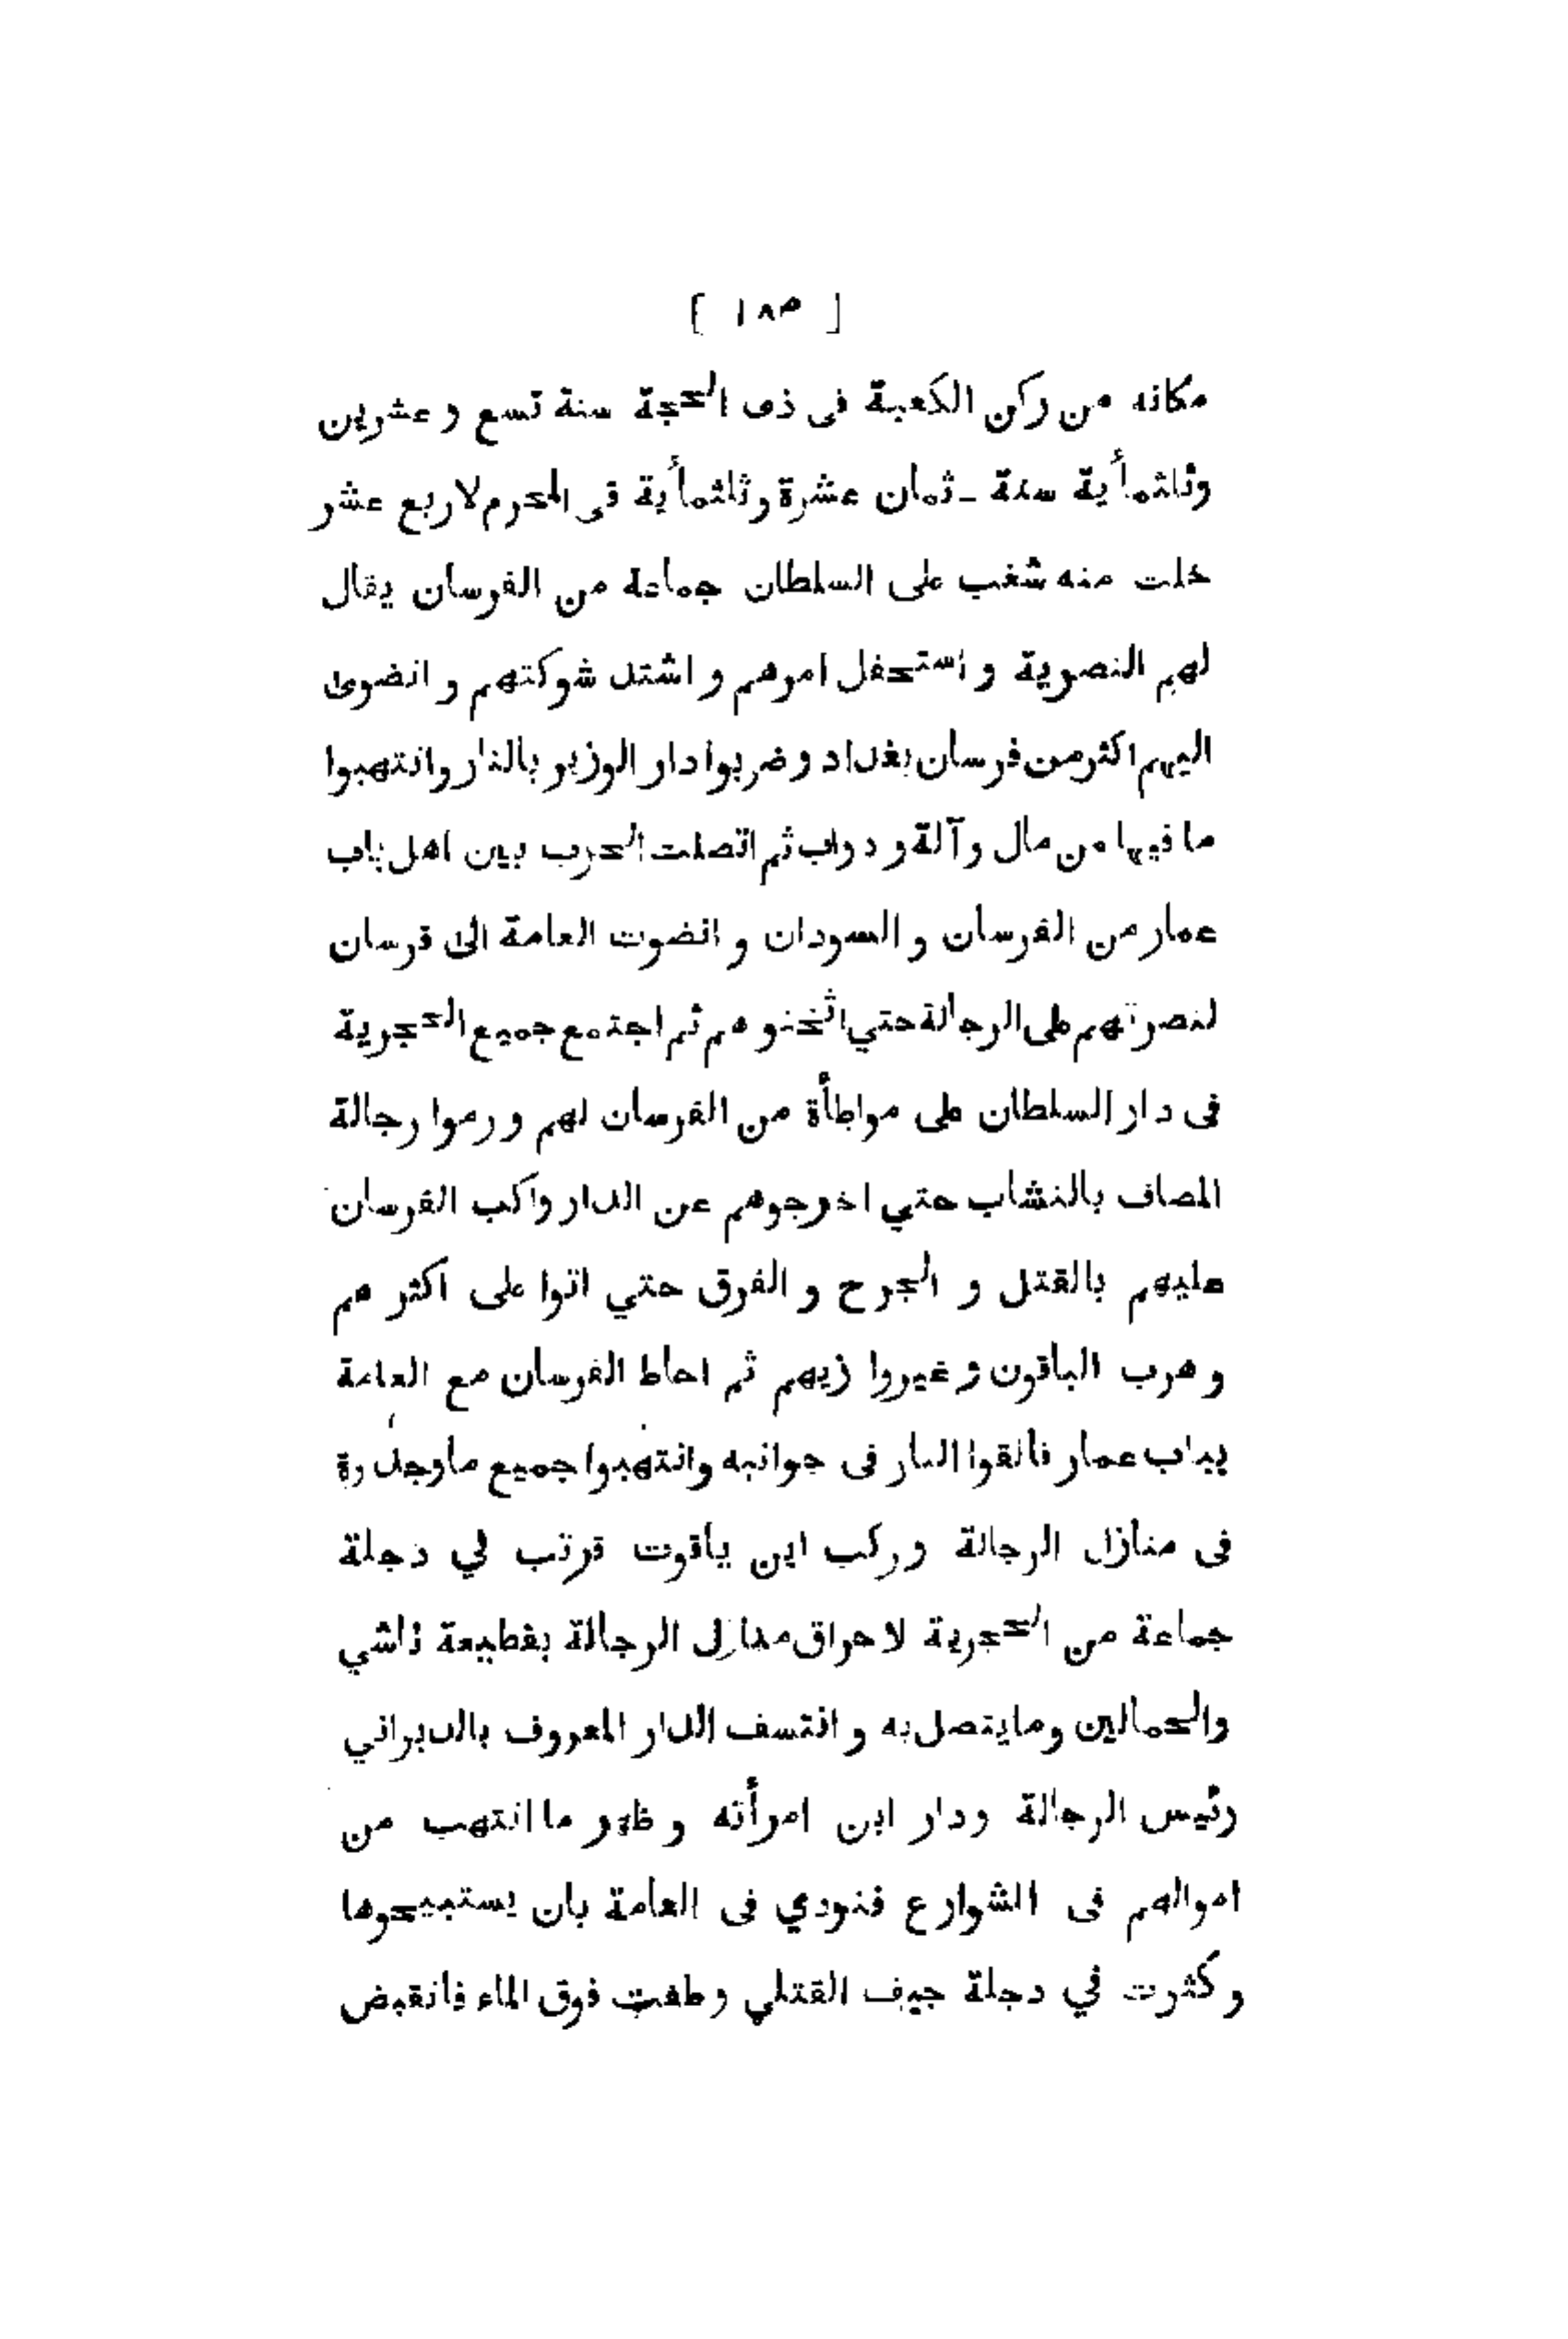 [ ١٨٥ ]
مكانه من ركن الكعبة فى ذى الحجة سنة تسع و عشرين
وثلثمأية سنة ـ ثمان عشرة وثلثمأية فى المحرم لاربع عشر
خلت منه شغب على السلطان جماعة من الفرسان يقال
لهم النصرية و استحفل امرهم و اشتد شوكتهم و انضوى
اليهم اكثر من فرسان بغداد وضربوا دار الوزير بالنار وانتهبوا
ما فيها من مال وآلة و دواب ثم اتصلت الحرب بين اهل باب
عمار من الفرسان و السودان و انضوت العامة الى فرسان
لنصرتهم على الرجالة حتي اثخنو هم ثم اجتمع جميع الحجرية
فى دار السلطان على مواطأة من الفرسان لهم و رموا رجالة
المصاف بالنشاب حتي اخرجوهم عن الدار واكب الفرسان
عليهم بالقتل و الجرح و الغرق حتي اتوا على اكثر هم
و هرب الباقون و غيروا زيهم ثم احاط الفرسان مع العامة
بباب عمار فالقوا النار فى جوانبه وانتهبوا جميع ماوجدوة
فى منازل الرجالة وركب ابن ياقوت فرتب في دجلة
جماعة من الحجرية لاحراق منازل الرجالة بقطيعة ناشي
والحمالين ومايتصل به و انتسف الدار المعروف بالديراني
رئيس الرجالة ودار ابن امرأته و ظهر ما انتهب من
اموالهم فى الشوارع فنودي فى العامة بان يستبيحوها
و كثرت في دجلة جيف القتلي وطفت فوق الماء فانقبض